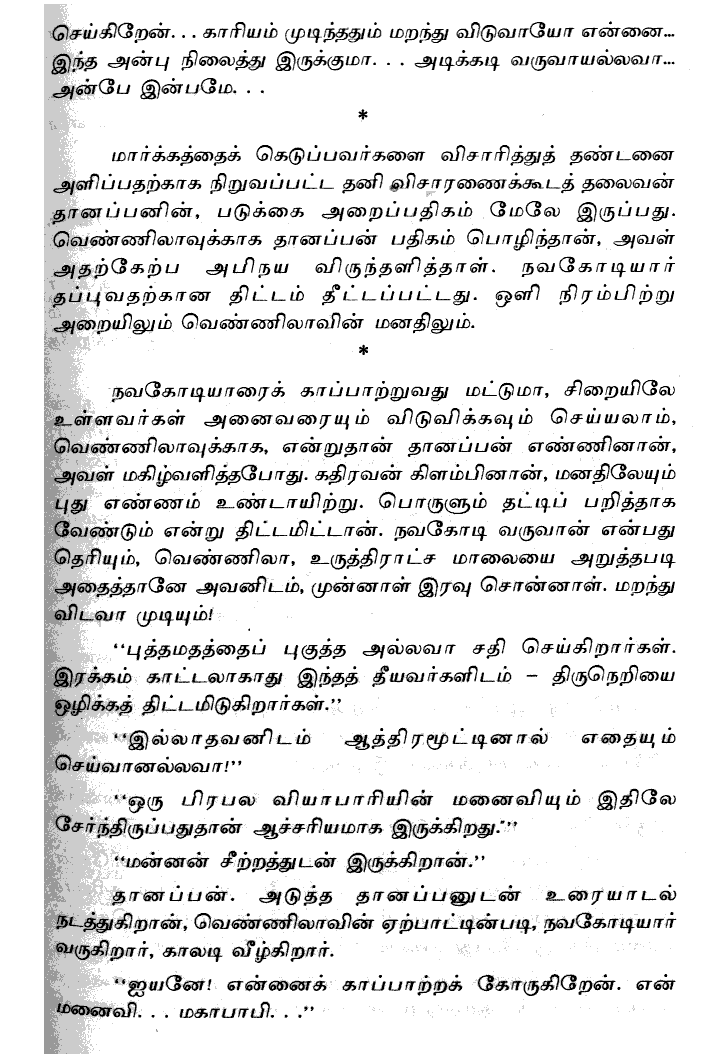 செய்கிறேன். . . காரியம் முடிந்ததும் மறந்து விடுவாயோ என்னை...
இந்த அன்பு நிலைத்து இருக்குமா. . . அடிக்கடி வருவாயல்லவா...
அன்பே இன்பமே. . .
*
மார்க்கத்தைக் கெடுப்பவர்களை விசாரித்துத் தண்டனை
அளிப்பதற்காக நிறுவப்பட்ட தனி விசாரணைக்கூடத் தலைவன்
தானப்பனின், படுக்கை அறைப்பதிகம் மேலே இருப்பது.
வெண்ணிலாவுக்காக தானப்பன் பதிகம் பொழிந்தான், அவள்
அதற்கேற்ப அபிநய விருந்தளித்தாள். நவகோடியார்
தப்புவதற்கான திட்டம் தீட்டப்பட்டது. ஒளி நிரம்பிற்று
அறையிலும் வெண்ணிலாவின் மனதிலும்.
*
நவகோடியாரைக் காப்பாற்றுவது மட்டுமா, சிறையிலே
உள்ளவர்கள் அனைவரையும் விடுவிக்கவும் செய்யலாம்,
வெண்ணிலாவுக்காக, என்றுதான் தானப்பன் எண்ணினான்,
அவள் மகிழ்வளித்தபோது. கதிரவன் கிளம்பினான், மனதிலேயும்
புது எண்ணம் உண்டாயிற்று. பொருளும் தட்டிப் பறித்தாக
வேண்டும் என்று திட்டமிட்டான். நவகோடி வருவான் என்பது
தெரியும், வெண்ணிலா, உருத்திராட்ச மாலையை அறுத்தபடி
அதைத்தானே அவனிடம், முன்னாள் இரவு சொன்னாள். மறந்து
விடவா முடியும்!
‘‘புத்தமதத்தைப் புகுத்த அல்லவா சதி செய்கிறார்கள்.
இரக்கம் காட்டலாகாது இந்தத் தீயவர்களிடம் – திருநெறியை
ஒழிக்கத் திட்டமிடுகிறார்கள்.’’
‘‘இல்லாதவனிடம் ஆத்திரமூட்டினால் எதையும்
செய்வானல்லவா!’’
‘‘ஒரு பிரபல வியாபாரியின் மனைவியும் இதிலே
சேர்ந்திருப்பதுதான் ஆச்சரியமாக இருக்கிறது.’’
‘‘மன்னன் சீற்றத்துடன் இருக்கிறான்.’’
தானப்பன். அடுத்த தானப்பனுடன் உரையாடல்
நடத்துகிறான், வெண்ணிலாவின் ஏற்பாட்டின்படி, நவகோடியார்
வருகிறார், காலடி வீழ்கிறார்.
‘‘ஐயனே! என்னைக் காப்பாற்றக் கோருகிறேன். என்
மனைவி. . . மகாபாபி. . .’’